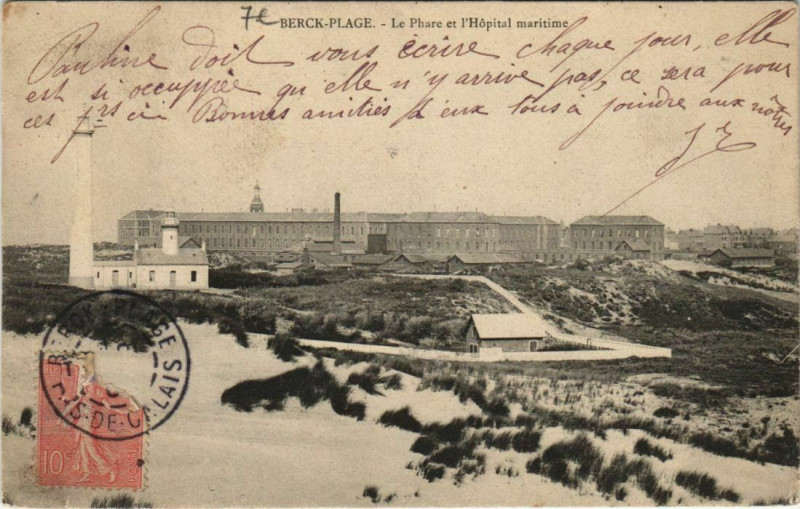 7e
BERCK-PLAGE. - Le Phare et l'Hôpital maritime
Pauline doit vous écrire chaque jour, elle
est si occupée qu'elle n'y arrive pas, ce sera pour
ces jrs ci Bonnes amitiés d'eux tous à joindre aux nôtres
BERCK-PLAGE
PAS-DE-CALAIS
10c